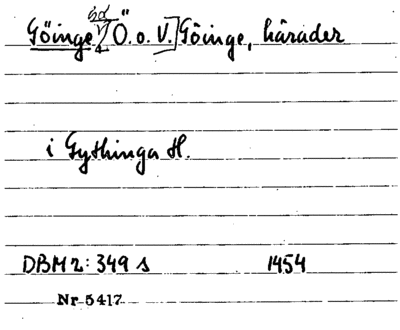 Göinge, Ö. o. V. Göinge, härader
i Gythinga H.
DBM 2: 349 s 1454
Nr 5417